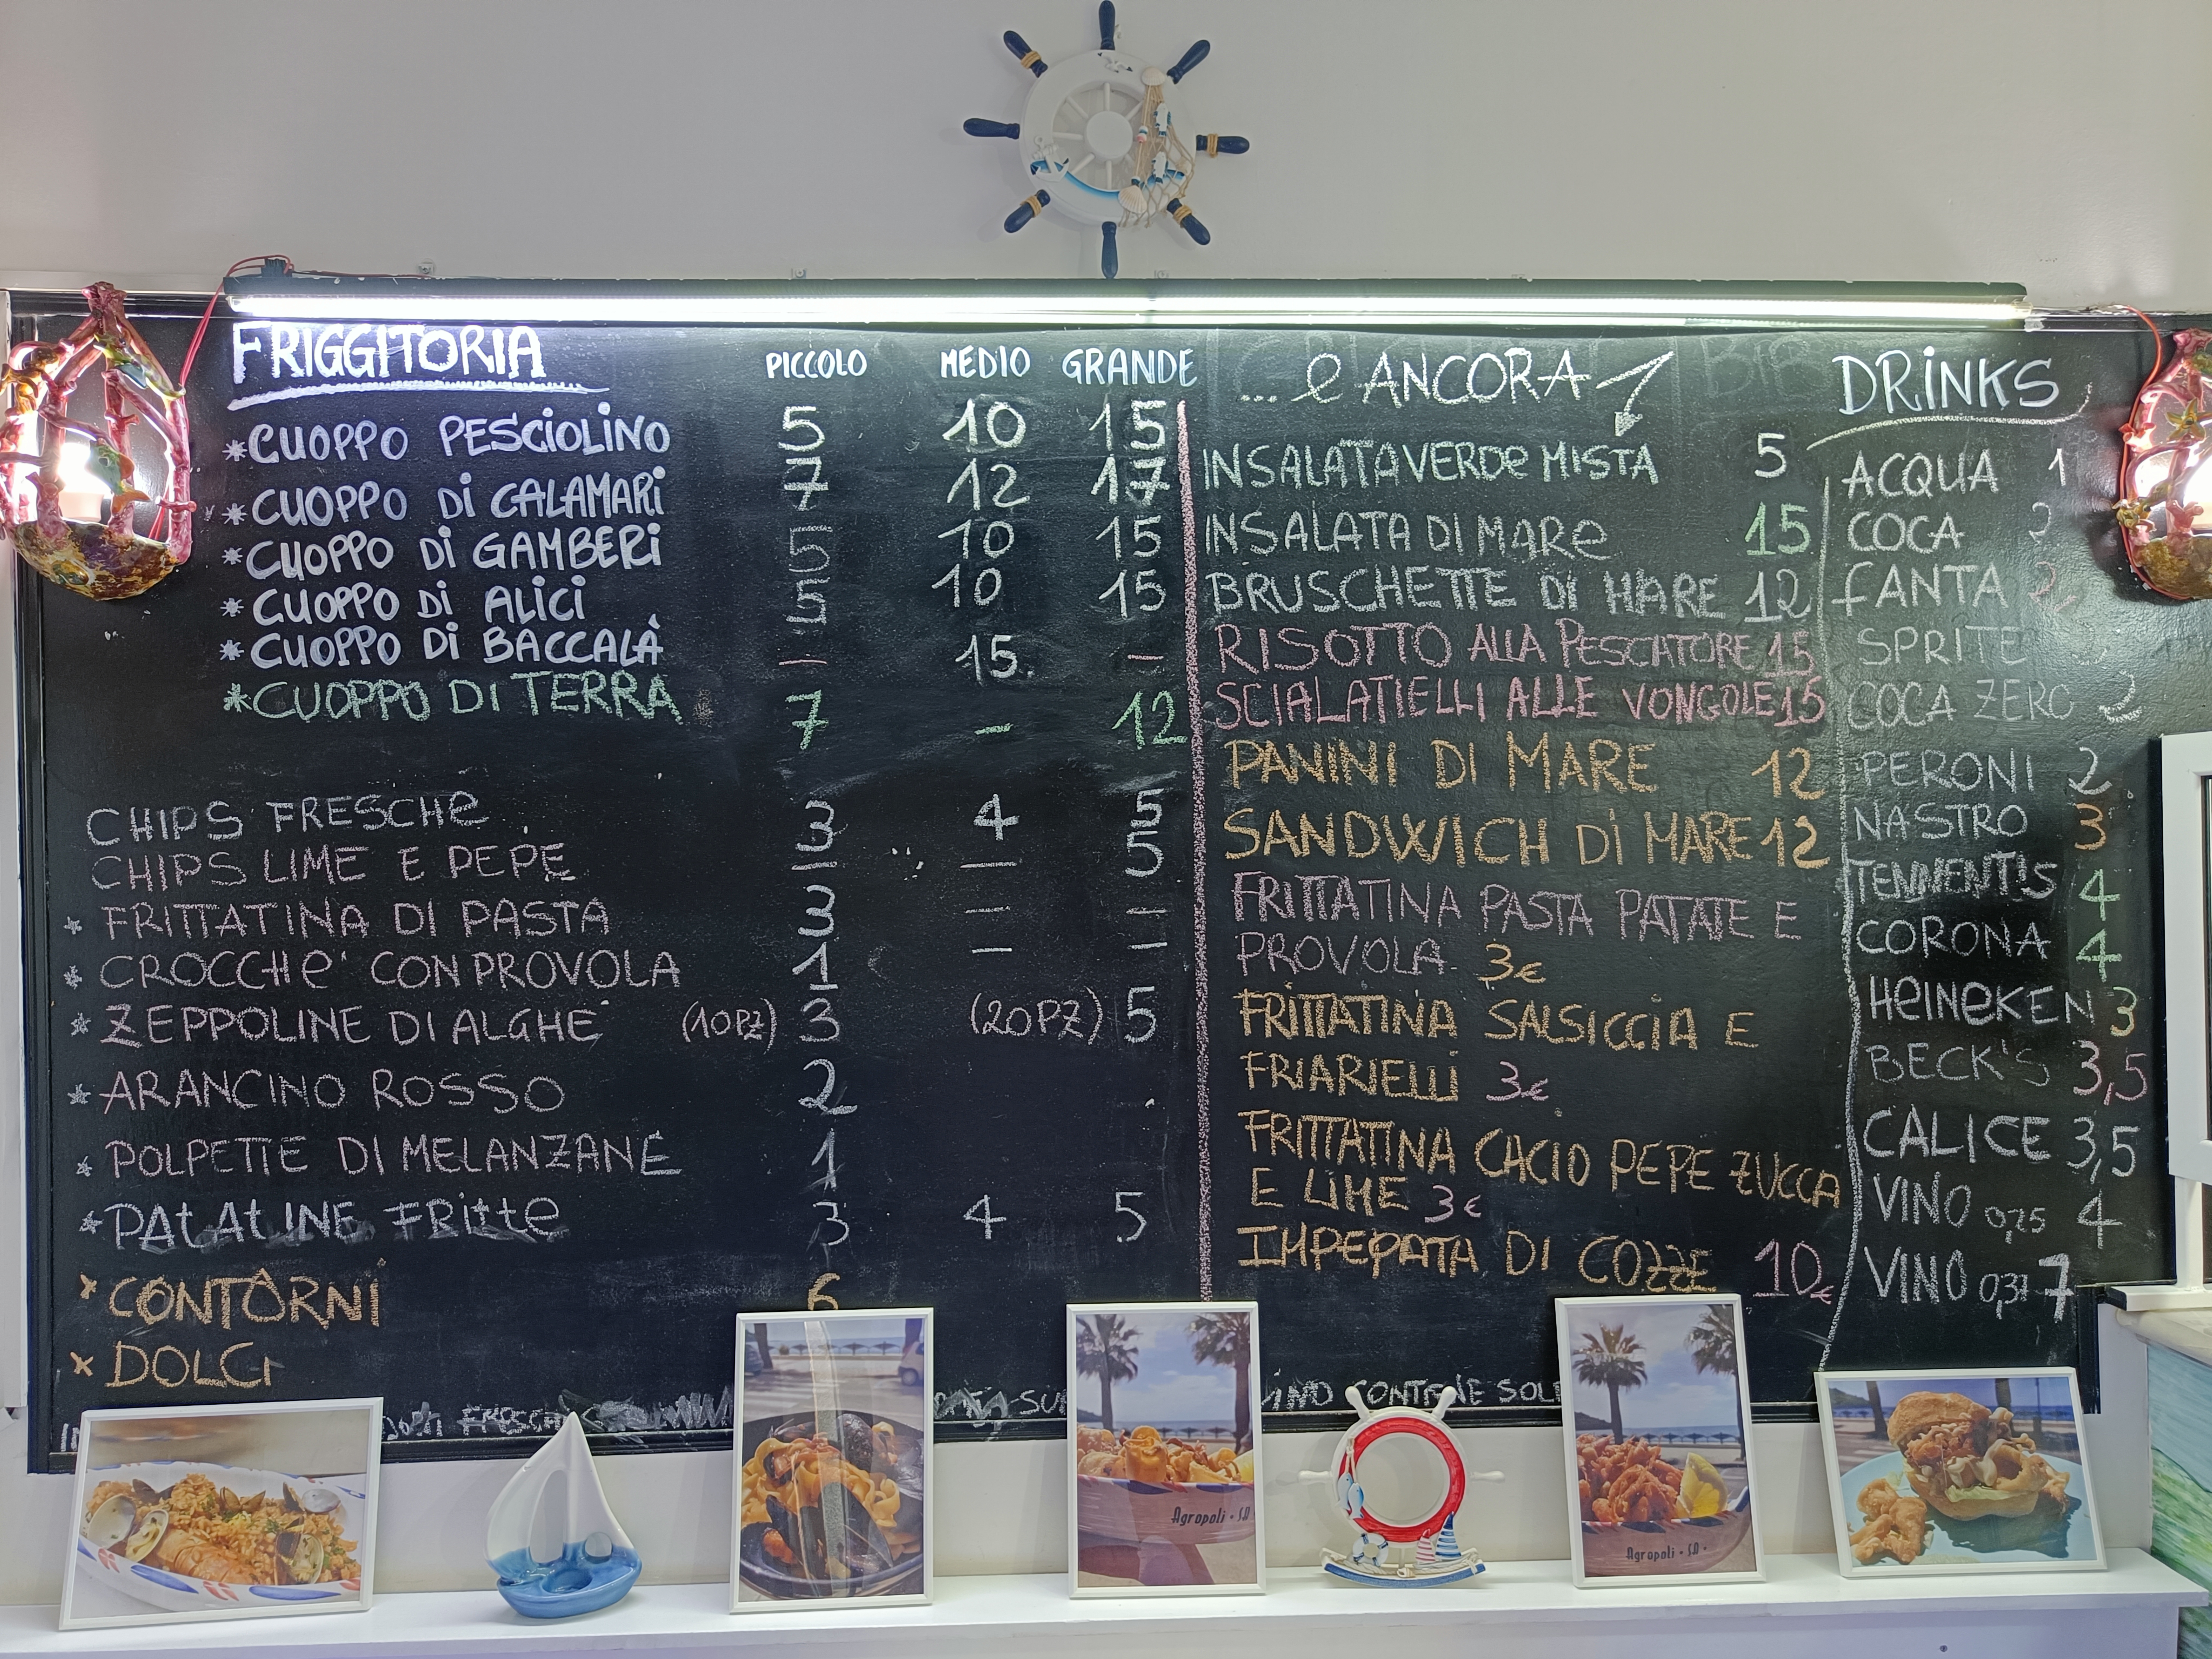 FRIGGITORIA PICCOLO MEDIO GRANDE
*CUOPPO PESCIOLINO 5 10 15
*CUOPPO DI CALAMARI 7 12 17
*CUOPPO DI GAMBERI 5 10 15
*CUOPPO DI ALICI 5 10 15
*CUOPPO DI BACCALÀ — 15 —
*CUOPPO DI TERRA 7 — 12
CHIPS FRESCHE 3 4 5
CHIPS LIME E PEPE 3 — 5
* FRITTATINA DI PASTA 3 — —
* CROCCHE' CON PROVOLA 1 — —
* ZEPPOLINE DI ALGHE (10PZ) 3 (20PZ) 5
* ARANCINO ROSSO 2
* POLPETTE DI MELANZANE 1
* PATATINE FRITTE 3 4 5
* CONTORNI 6
* DOLCI
... e ANCORA
INSALATA VERDE MISTA 5
INSALATA DI MARE 15
BRUSCHETTE DI MARE 12
RISOTTO ALLA PESCATORE 15
SCIALATIELLI ALLE VONGOLE 15
PANINI DI MARE 12
SANDWICH DI MARE 12
FRITTATINA PASTA PATATE E
PROVOLA 3€
FRITTATINA SALSICCIA E
FRIARIELLI 3€
FRITTATINA CACIO PEPE ZUCCA
E LIME 3€
IMPEPATA DI COZZE 10€
DRINKS
ACQUA 1
COCA 2
FANTA 2
SPRITE
COCA ZERO 2
PERONI 2
NASTRO 3
TENNENT'S 4
CORONA 4
HEINEKEN 3
BECK'S 3,5
CALICE 3,5
VINO 0,25 4
VINO 0,3 7
CONTIENE
Agropoli - SA
Agropoli - SA